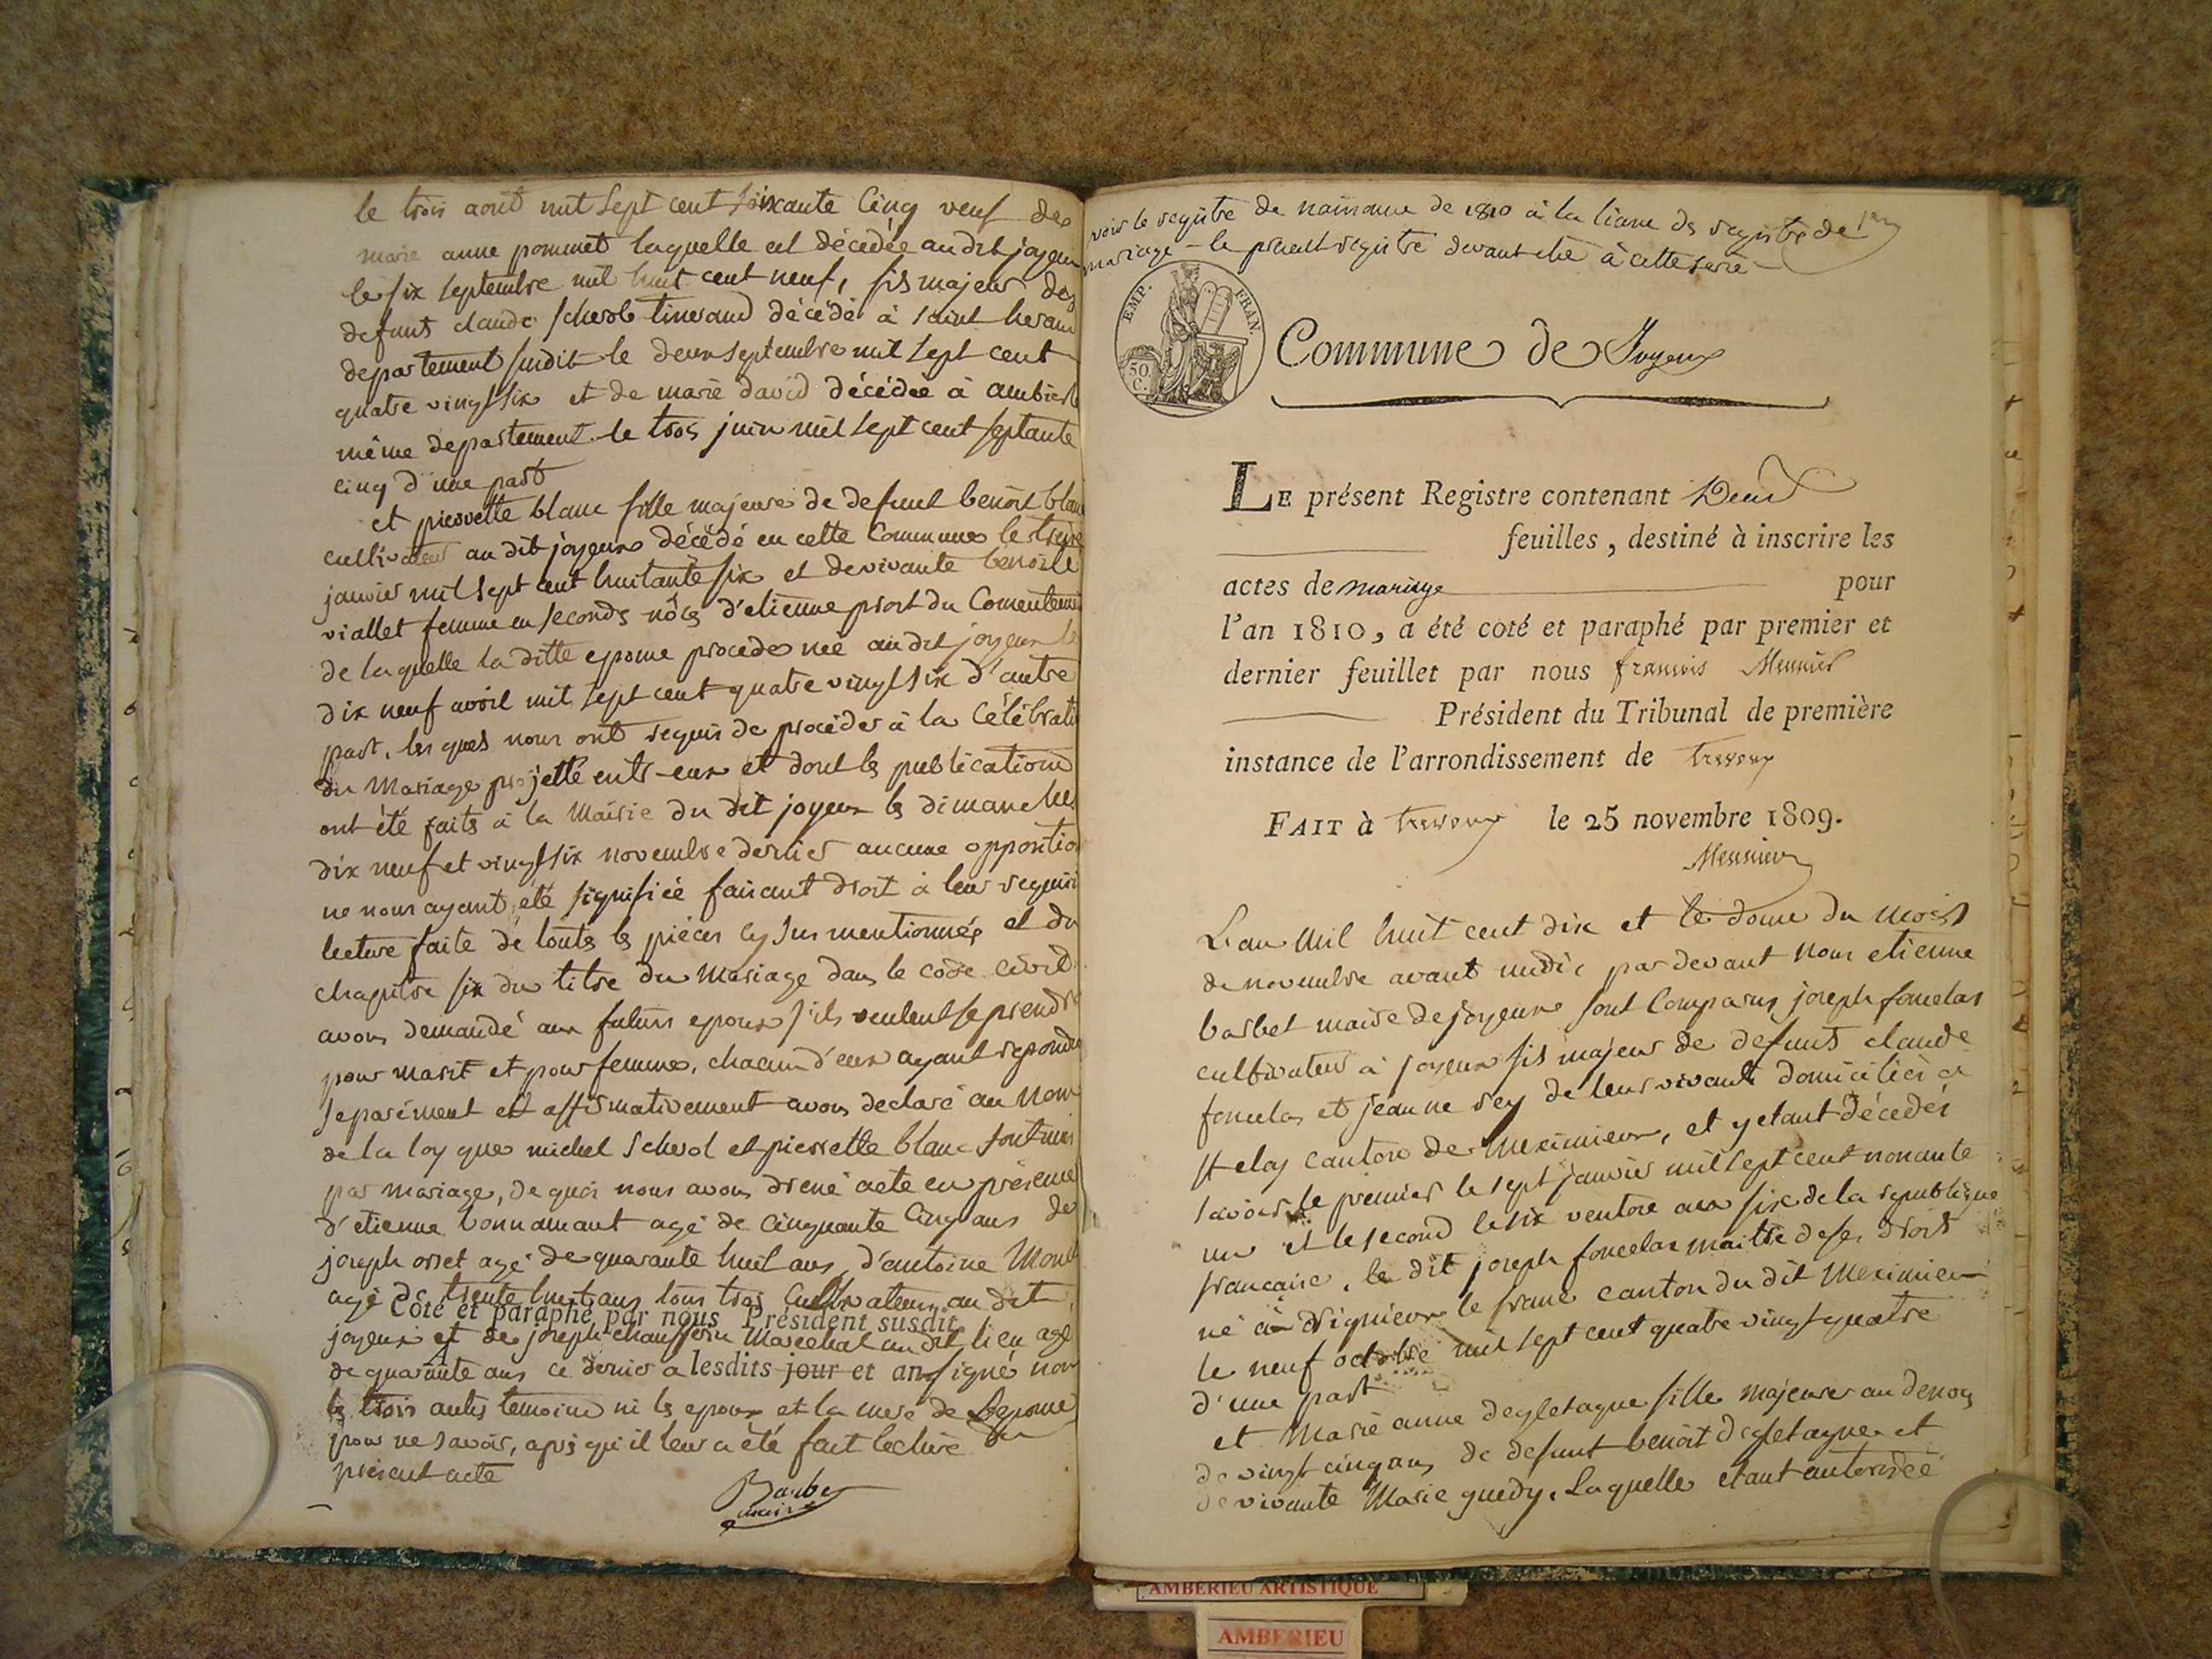 le trois août mil sept cent soixante Cinq veuf de
marie anne pommet laquelle est décédée au dit joyeux
le six septembre mil huit cent neuf, fils majeur des
defunts claude scherol tinerand décédé à saint heran
departement susdit le deux septembre mil sept cent
quatre vingt six et de marie david décédée à ambierl
même département le trois juin mil sept cent septante
cinq d'une part
et pierrette blanc fille majeure de defunt benoit blanc
cultivateur au dit joyeux décédé en cette Commune le treize
janvier mil sept cent huitante six et de vivante benoite
viallet femme en seconds nôces d'etienne priort du Consentement
de laquelle la ditte epouse procede née au dit joyeux le
dix neuf avril mil sept cent quatre vingt six d'autre
part, les quels nous ont requis de proceder à la Célébrati
du Mariage projetté entr-eux et dont les publications
ont été faits à la Mairie du dit joyeux les dimanches
dix neuf et vingt six novembre dernier aucune opposition
ne nous ayant été signifiée faisant droit à leur requisi
lecture faite de touts les pièces cy sus mentionnés et du
chapitre six du titre du Mariage dans le code civil
avons demandé aux futurs epoux s'ils veulent se prendre
pour marit et pour femme, chacun d'eux ayant repondu
separément et affirmativement avons declaré au nom
de la loy que michel scherol et pierrette blanc sont unis
par mariage, de quoi nous avons dressé acte en présence
d'etienne bonnamant agé de cinquante Cinq ans de
joseph orset agé de quarante huit ans, d'antoine Mont
agé de trente huit ans tous trois Cultivateurs au dit
Coté et paraphé par nous Président susdit
joyeux et de joseph chausserin Marechal au dit lieu agé
de quarante ans ce dernier a lesdits jour et an signé non
les trois autres temoins ni les epoux et la mere de Lepouse
pour ne savoir, après qu'il leur a été fait lecture du
présent acte
Barbet
maire
voir le registre de naissance de 1810 à la liasse des registres de
mariage - le présent registre devant être à cette serie
EMP. FRAN.
50.
C.
Commune de Joyeux
LE présent Registre contenant Deux
feuilles, destiné à inscrire les
actes de mariage pour
l'an 1810, a été coté et paraphé par premier et
dernier feuillet par nous francois Meunier
Président du Tribunal de première
instance de l'arrondissement de Trevoux
FAIT à Trevoux le 25 novembre 1809.
Meunier
L'an mil huit cent dix et le douze du mois
de novembre avant midi par devant nous etienne
barbet maire de joyeux sont Comparus joseph foncelas
cultivateur à joyeux fils majeur de defunts claude
foncelas et jeanne rey de leur vivants domiciliés à
st eloy canton de Meximieux, et y etant décedés
savoir le premier le sept janvier mil sept cent nonante
un et le second le six ventose an six de la republique
francaise, le dit joseph foncelas maitre de ses droits
né à Rignieux le franc canton du dit Meximieux
le neuf octobre mil sept cent quatre vingt quatre
d'une part
et Marie anne degletagne fille majeure au dessus
de vingt cinq ans de defunt benoit degletagne et
de vivante Marie guedy, Laquelle etant autorisée
AMBERIEU ARTISTIQUE
AMBERIEU